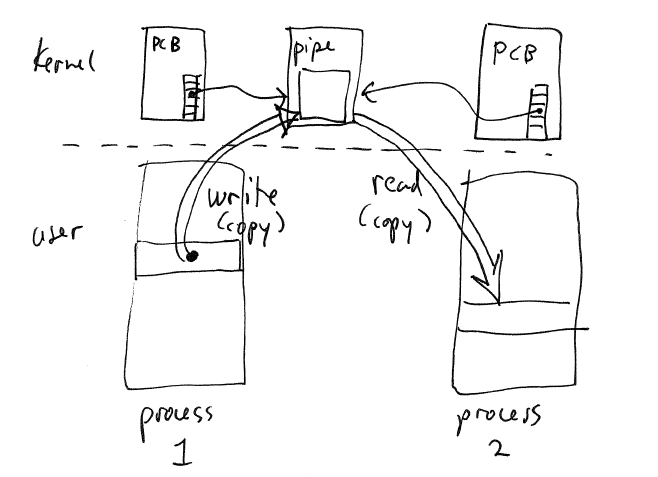 Kernel
PCB
pipe
PCB
write
(copy)
read
(copy)
user
process
1
process
2